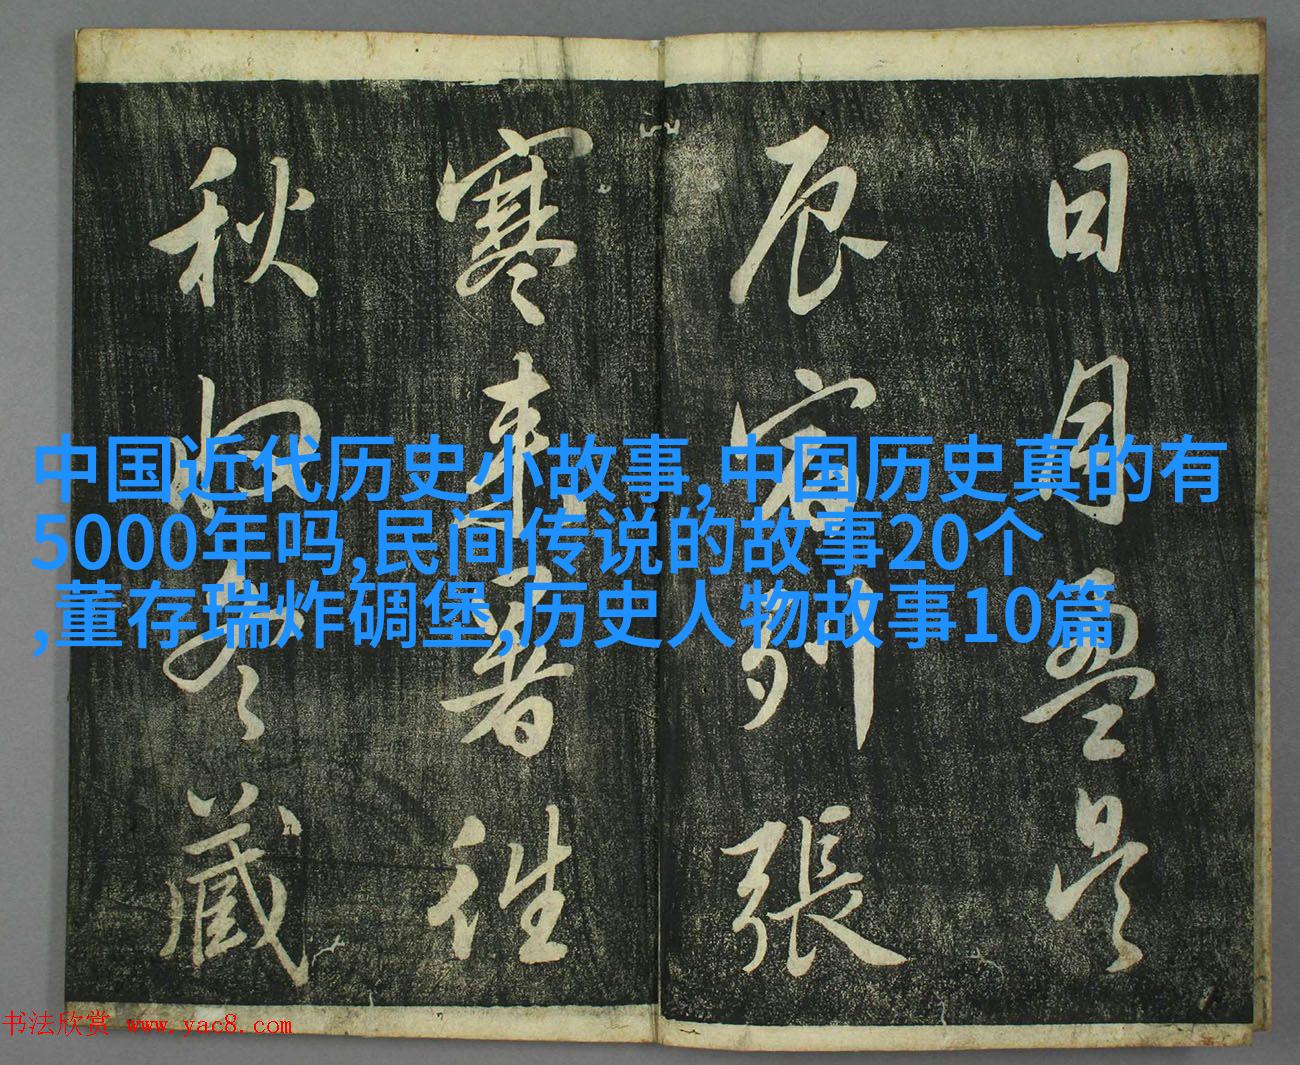 日月盈昃
辰宿列張
寒來暑往
秋收冬藏
中国近代历史小故事,中国历史真的有
5000年吗,民间传说的故事20个
,董存瑞炸碉堡,历史人物故事10篇
书法欣赏 www.yac8.com